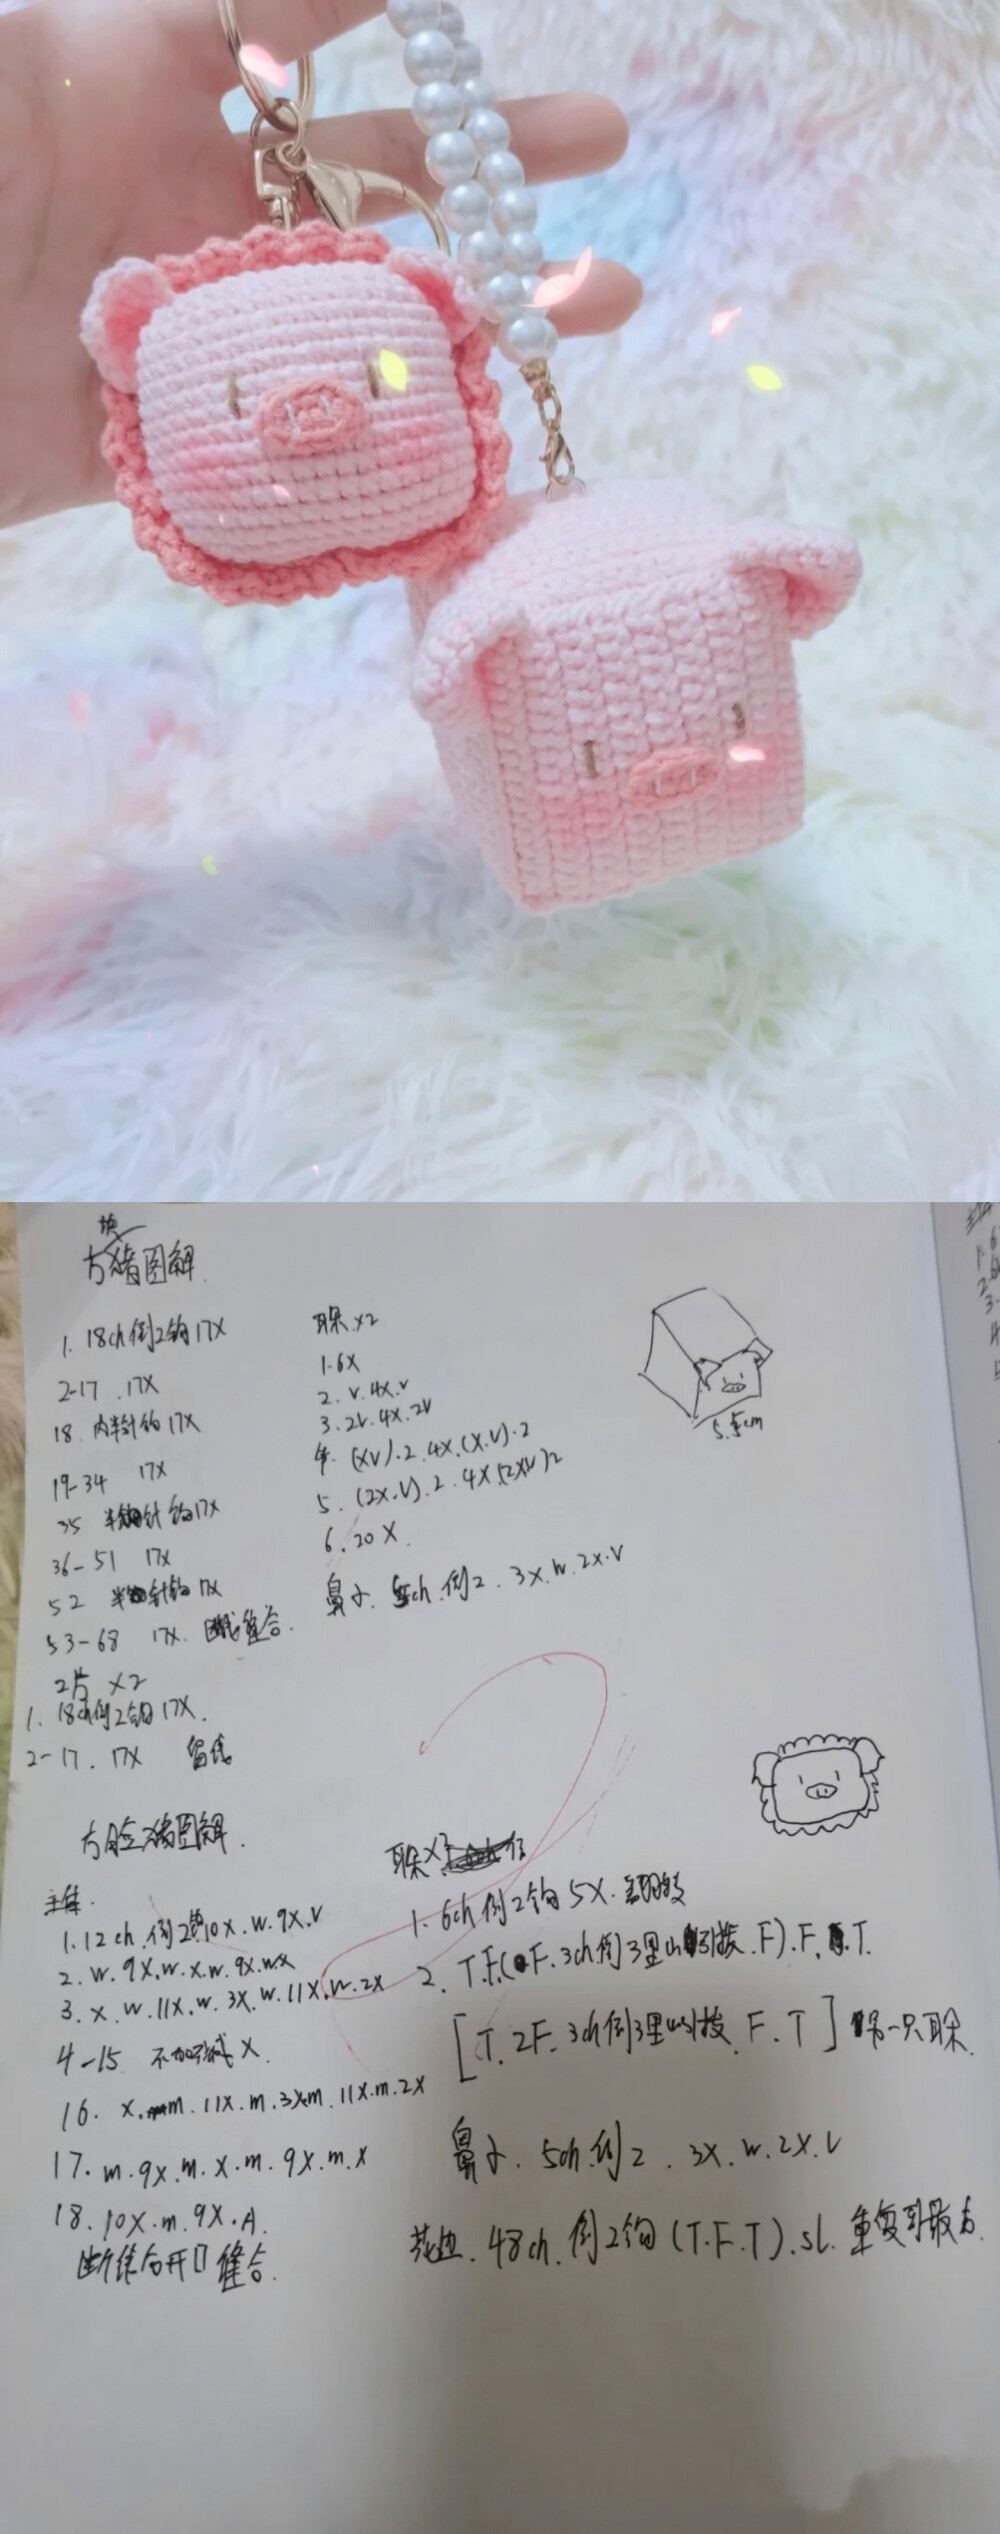 方块猪图解
1. 18ch 倒2钩17X
2-17 . 17X
18. 内半针钩17X
19-34 17X
35 半针钩17X
36-51 17X
52 半针钩17X
53-68 17X. 断线缝合.
2片 X2
1. 18ch倒2钩17X.
2-17. 17X 留线
耳朵.x2
1.6X
2. V.4X.V
3.2V.4X.2V
4. (XV).2.4X.(X.V).2
5. (2X.V).2.4X.(2XV)2
6.20X.
鼻子. 5ch.倒2. 3X.W.2X.V
5.5cm
方脸猪图解.
主体.
1.12ch.倒2钩10X.W.9X.V
2. W.9X.W.X.W.9X.W.X
3. X.W.11X.W.3X.W.11X.W.2X
4-15 不加不减X.
16. X.m.11X.m.3X.m.11X.m.2X
17. m.9X.m.X.m.9X.m.X
18. 10X.m.9X.A.
断线合开口缝合.
耳朵X2
1. 6ch倒2钩5X.
2. T.F.(F.3ch倒3里山引拔.F).F.T.
[T.2F.3ch倒3里山引拔.F.T] 另一只耳朵.
鼻子. 5ch.倒2. 3X.W.2X.V
花边. 48ch.倒2钩(T.F.T).sl.重复到最后.
1.6
3.
4